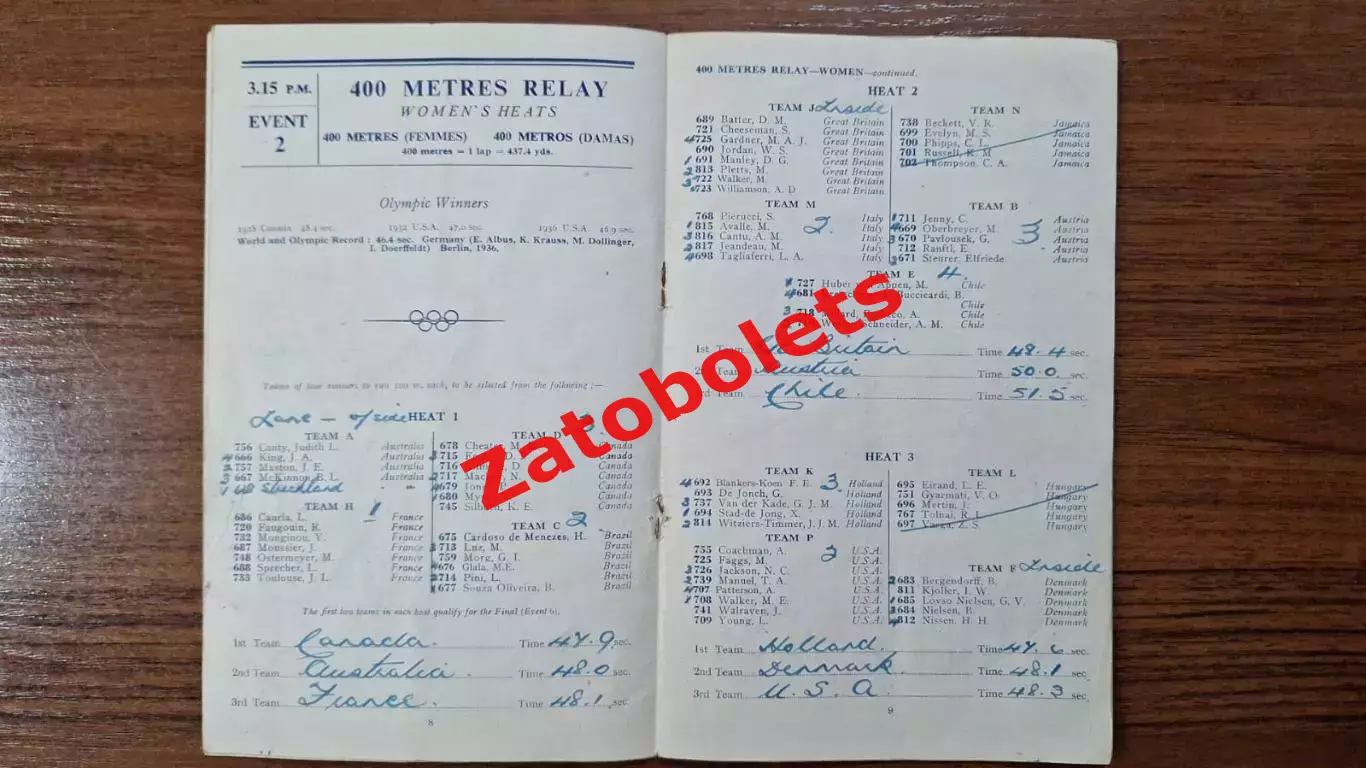 3.15 P.M.
EVENT
2
400 METRES RELAY
WOMEN'S HEATS
400 METRES (FEMMES) 400 METROS (DAMAS)
400 metres = 1 lap = 437.4 yds.
Olympic Winners
1928 Canada 48.4 sec. 1932 U.S.A. 47.0 sec. 1936 U.S.A. 46.9 sec.
World and Olympic Record : 46.4 sec. Germany (E. Albus, K. Krauss, M. Dollinger,
I. Doerffeldt) Berlin, 1936.
Teams of four runners to run 100 m. each, to be selected from the following :—
Lane – o/side HEAT 1
TEAM A
756 Canty, Judith L. Australia
4 666 King, J. A. Australia
2 757 Maston, J. E. Australia
3 667 McKinnon, B. L. Australia
1 668 Strickland " "
TEAM H 1
686 Caurla, L. France
720 Faugouin, R. France
732 Monginou, Y. France
687 Moussier, J. France
748 Ostermeyer, M. France
688 Sprecher, L. France
733 Toulouse, J. L. France
TEAM D 3
678 Cheater, M. Canada
3 715 D. Canada
716 D. Canada
2 717 N. Canada
4 679 Jon Canada
1 680 My Canada
745 Sil K. E. Canada
TEAM C 2
675 Cardoso de Menezes, H. Brazil
3 713 Luz, M. Brazil
759 Morg, G. I. Brazil
4 676 Glala, M. E. Brazil
2 714 Pini, L. Brazil
1 677 Souza Oliveira, B. Brazil
The first two teams in each heat qualify for the Final (Event 6).
1st Team Canada. Time 47.9 sec.
2nd Team Australia Time 48.0 sec.
3rd Team France. Time 48.1 sec.
8
400 METRES RELAY—WOMEN—continued.
HEAT 2
TEAM J Inside
689 Batter, D. M. Great Britain
721 Cheeseman, S. Great Britain
4 725 Gardner, M. A. J. Great Britain
690 Jordan, W. S. Great Britain
1 691 Manley, D. G. Great Britain
2 813 Pletts, M. Great Britain
3 722 Walker, M. Great Britain
723 Williamson, A. D Great Britain
TEAM N
738 Beckett, V. R. Jamaica
699 Evelyn, M. S. Jamaica
700 Phipps, C. L. Jamaica
701 Russell, K. M Jamaica
702 Thompson, C. A. Jamaica
TEAM M 2
768 Pierucci, S. Italy
1 815 Avalle, M. Italy
3 816 Cantu, A. M. Italy
2 817 Jeandeau, M. Italy
4 698 Tagliaferri, L. A. Italy
TEAM B 3
1 711 Jenny, C. Austria
4 669 Oberbreyer, M. Austria
3 670 Pavlousek, G. Austria
712 Ranftl, E. Austria
2 671 Steurer, Elfriede Austria
TEAM E 4
727 Huber Appen, M. Chile
4 681 Buccicardi, B.
Chile
3 718 A. Chile
Schneider, A. M. Chile
1st Team Britain Time 48.4 sec.
2nd Team Austria Time 50.0 sec.
3rd Team Chile. Time 51.5 sec.
HEAT 3
TEAM K 3
4 692 Blankers-Koen F. E. Holland
693 De Jonch, G. Holland
3 737 Van der Kade, G. J. M. Holland
1 694 Stad-de Jong, X. Holland
2 814 Witziers-Timmer, J. J. M. Holland
TEAM L
695 Eirand, L. E. Hungary
751 Gyarmati, V. O Hungary
696 Mertin, J Hungary
767 Tolnai, R. I. Hungary
697 Varga, Z. S. Hungary
TEAM P 2
755 Coachman, A. U.S.A.
725 Faggs, M. U.S.A.
3 726 Jackson, N. C. U.S.A.
2 739 Manuel, T. A. U.S.A.
4 707 Patterson, A. U.S.A.
1 708 Walker, M. E. U.S.A.
741 Walraven, J. U.S.A.
709 Young, L. U.S.A.
TEAM F Inside
2 683 Bergendorff, B. Denmark
811 Kjoller, I. W. Denmark
1 685 Lovso Nielsen, G. V. Denmark
3 684 Nielsen, B. Denmark
4 812 Nissen, H. H. Denmark
1st Team Holland. Time 47.6 sec.
2nd Team Denmark Time 48.1 sec.
3rd Team U.S.A. Time 48.3 sec.
9
Zatobolets